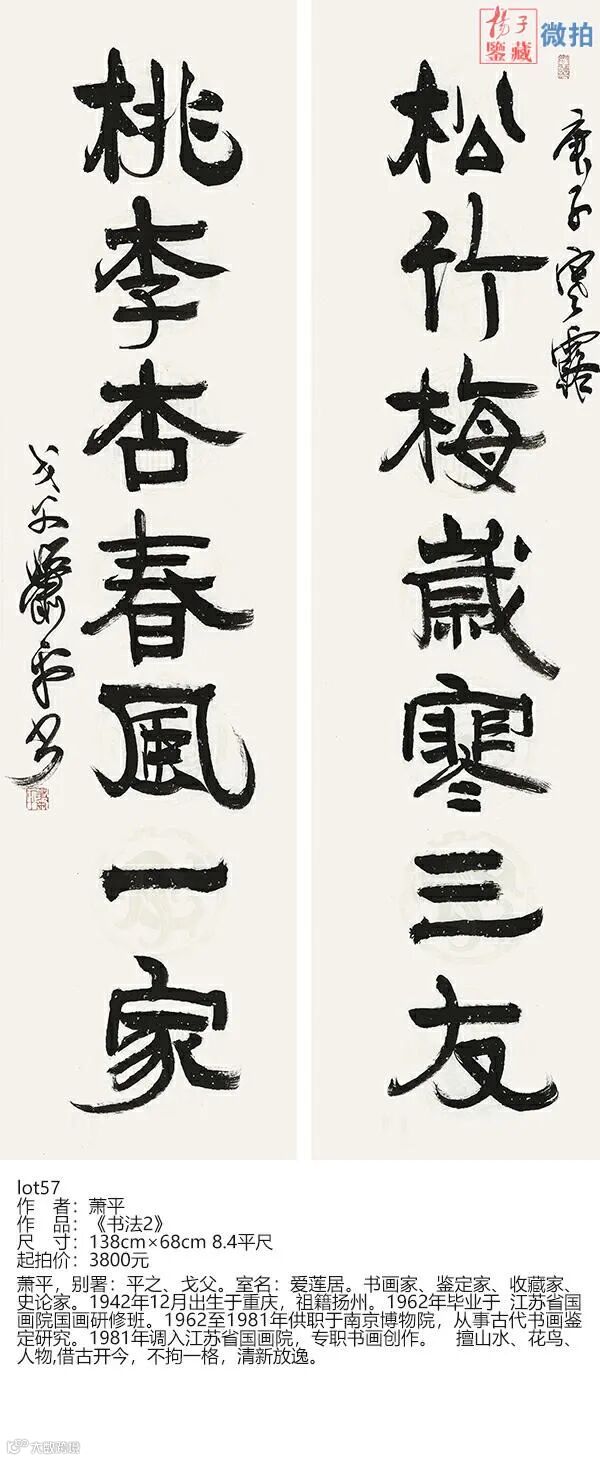 揚子
鑒藏
微拍
庚子寒露
松竹梅歲寒三友
桃李杏春風一家
戈父蕭平書
lot57
作 者：萧平
作 品：《书法2》
尺 寸：138cm×68cm 8.4平尺
起拍价：3800元
萧平，别署：平之、戈父。室名：爱莲居。书画家、鉴定家、收藏家、
史论家。1942年12月出生于重庆，祖籍扬州。1962年毕业于 江苏省国
画院国画研修班。1962至1981年供职于南京博物院，从事古代书画鉴
定研究。1981年调入江苏省国画院，专职书画创作。 擅山水、花鸟、
人物,借古开今，不拘一格，清新放逸。
大数跨境